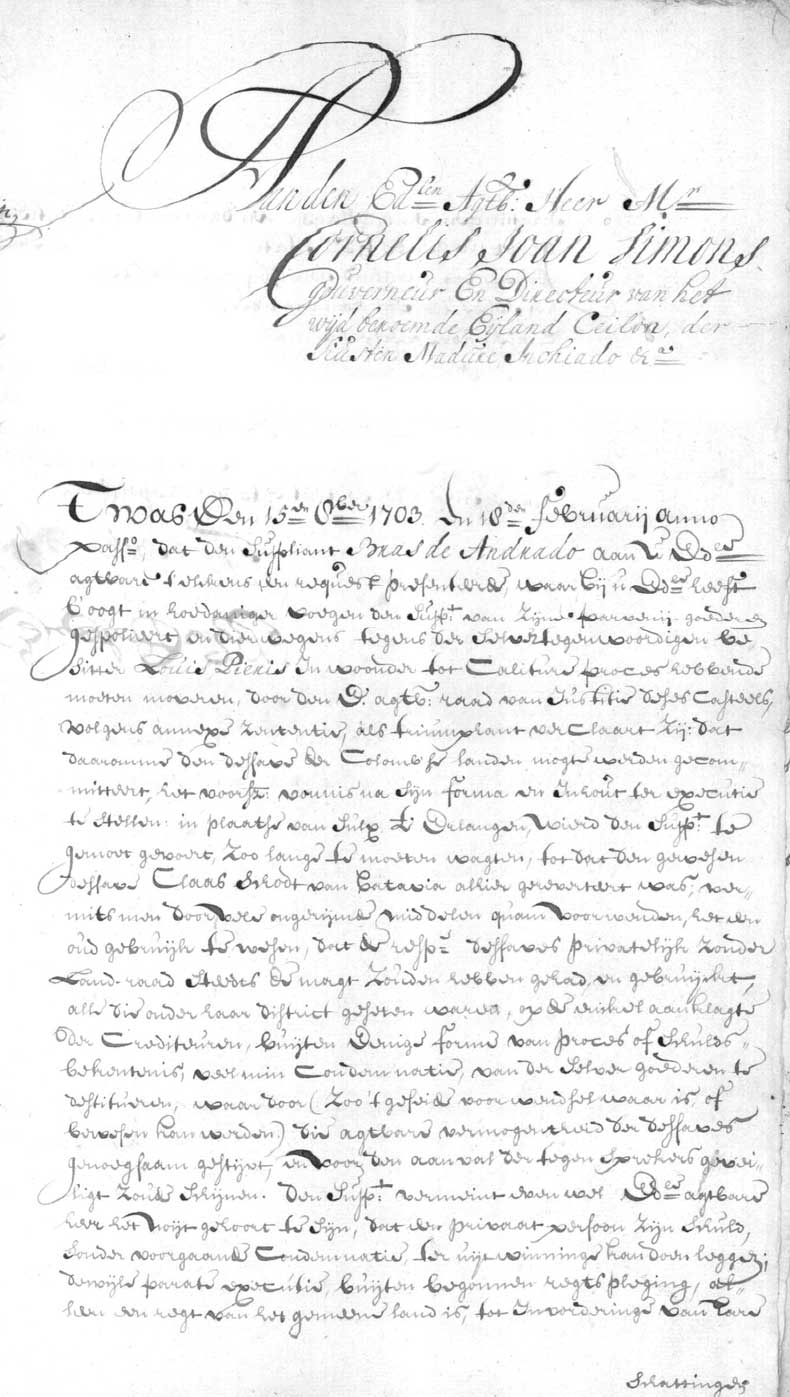 Aan den Ed:len Agtb: Heer Mr
Cornelis Joan Simons
gouverneur En Directeur van het
wijd beroemde Eijland Ceilon, der
Kusten Madure, Inchiado &a
Twas Den 15en 8ber 1703. En 18den februarij anno
passo, dat den Suppliant Bras de Andrado aan U Edle
agtbare telkens een request presenteerde, waar bij u Edle heeft
b'oogt in hoedaniger voegen den Suppt van zijne parvenij goederen
gespolieert, en dierwegens tegens der selver tegenwoordigen be
sitter Louis Pieris Inwoonder tot Caliture proces hebbende
moeten moveren, door den E: agtb: raad van Justitie deses Casteels,
volgens annexe zententie, als triumphant verclaart zij: dat
daaromme den dessave der Colombose landen mogte werden gecom-
mitteert, het voorsz: vonnis na sijn forma en Inhout ter executie
te stellen: in plaatse van sulx te Erlangen, wierd den Suppt te
gemoet gevoert, zoo lange te moeten wagten, tot dat den gewesen
dessave Claas Schodt van batavia alhier gereverteert was; ver-
mits men door vele ongerijmde middelen quam voorwenden, het een
oud gebruijk te wesen, dat de respe dessaves privatelijk zonder
Land-raad steets de magt zouden hebben gehad, en gebruijckt,
alle die onder haar district geseten waren, op de enkel aanklagte
der Crediteuren, buijten Eenige forme van proces of schulds-
bekentenis, veel min Condemnatie, van der selver goederen te
destitueren, waar door (zoo 't geseide voorwendsel waar is, of
bewesen kan werden) die agtbare vermogentheid der dessaves
genoegsaam gestijft, en voor den aanval der tegen sprekers gevei-
ligt zoude schijnen. den Suppt vermeint even wel Edle agtbare
heer het noijt gehoort te sijn, dat een privaat persoon zijn schuld,
sonder voorgaande Condemnatie, ter uijtwinninge kan doen leggen;
dewijle parate executie, buijten begonnen regtspleging, al-
leen een regt van het gemeene land is, tot Invorderinge van hare
schattingen